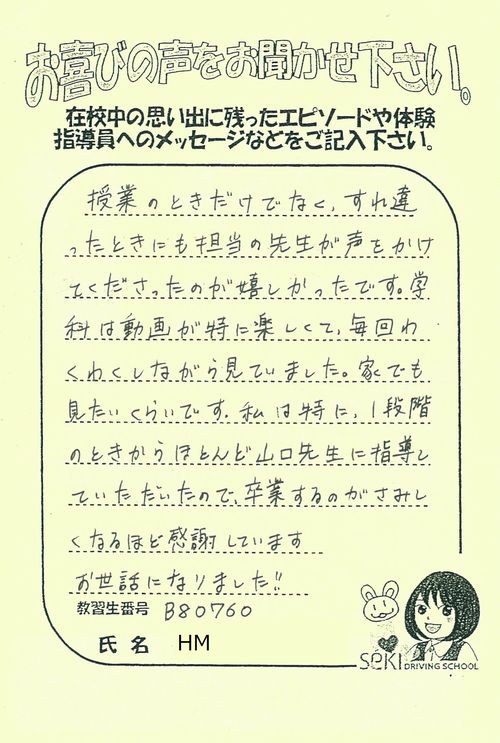 お喜びの声をお聞かせ下さい。
在校中の思い出に残ったエピソードや体験
指導員へのメッセージなどをご記入下さい。
授業のときだけでなく、すれ違
ったときにも担当の先生が声をかけ
てくださったのが嬉しかったです。学
科は動画が特に楽しくて、毎回わ
くわくしながら見ていました。家でも
見たいくらいです。私は特に、1段階
のときからほとんど山口先生に指導し
ていただいたので、卒業するのがさみし
くなるほど感謝しています
お世話になりました!!
教習生番号 B80760
氏名 HM
SEKI DRIVING SCHOOL